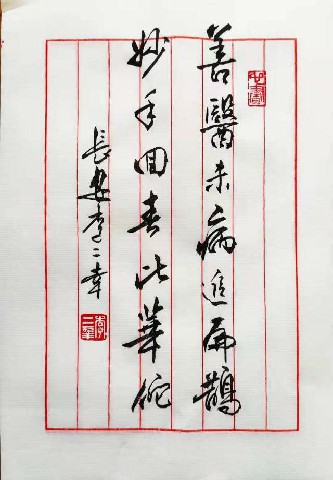 善醫未病追扁鵲
妙手回春比華佗
長安李二幸